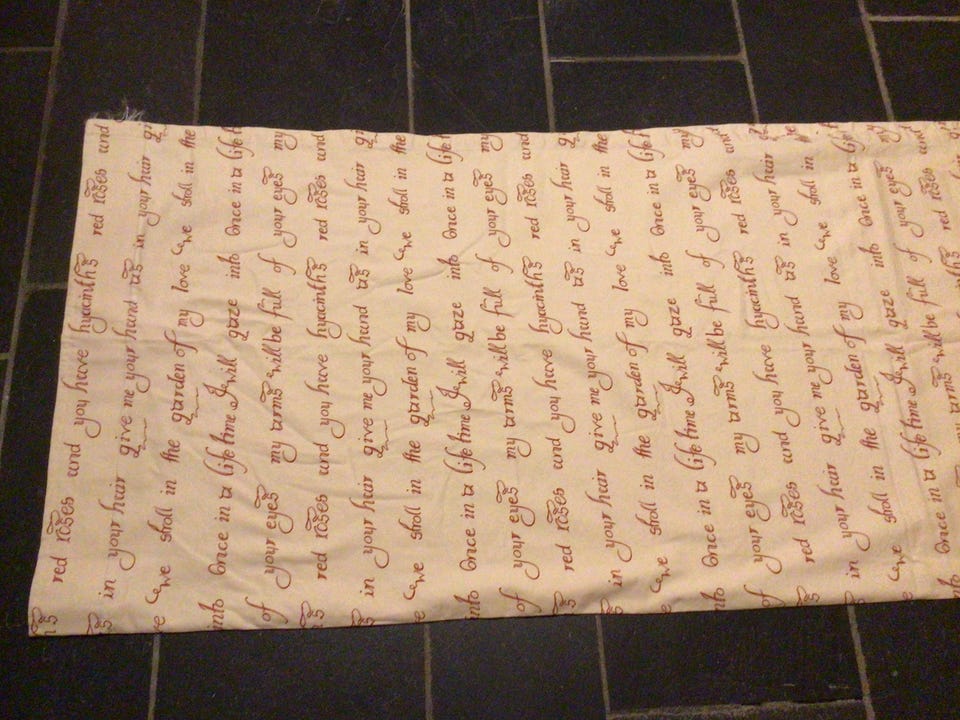 red roses and you have hyacinths red roses and
as in your hair give me your hand as in your hair
we stroll in the garden of my love we stroll in the
into Once in a life time I will gaze into Once in a life
of your eyes my arms will be full of your eyes my
red roses and you have hyacinths red roses and
as in your hair give me your hand as in your hair
we stroll in the garden of my love we stroll in the
into Once in a life time I will gaze into Once in a life
of your eyes my arms will be full of your eyes my
red roses and you have hyacinths red roses and
in your hair give me your hand as in your hair
we stroll in the garden of my love we stroll in the
into Once in a life time I will gaze into Once in a life
of your eyes my arms will be full of your eyes my
red roses and you have hyacinths red roses and
in your hair give me your hand as in your hair
we stroll in the garden of my love we stroll in
Once in a life time I will gaze into Once in a life
my arms will be full of your eyes my
red roses